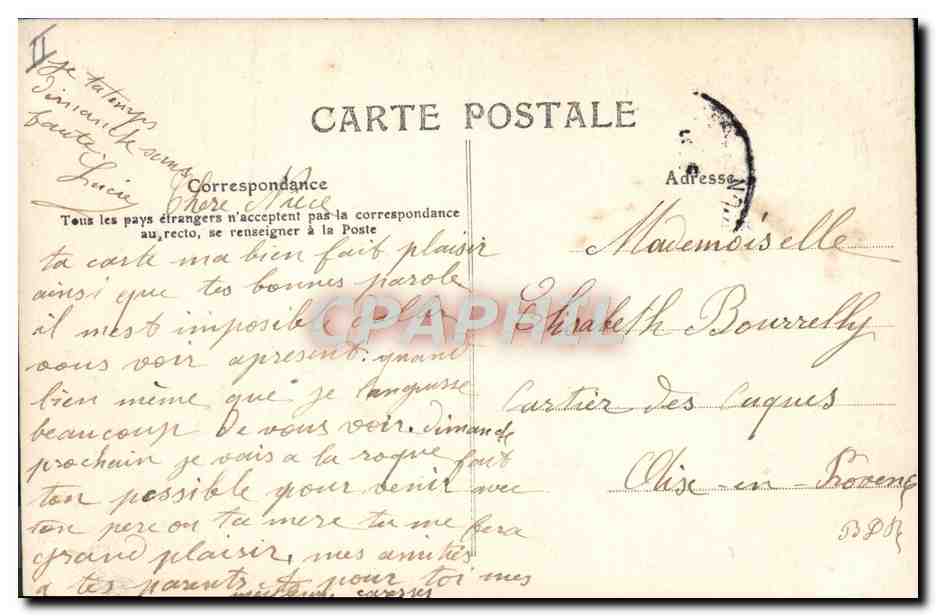 II
je tatemps
dimanche sans
faute.
Lucie
CARTE POSTALE
Correspondance
Tous les pays étrangers n'acceptent pas la correspondance
au recto, se renseigner à la Poste
Adresse
Chere Niece
ta carte ma bien fait plaisir
ainsi que tes bonnes parole
il mest imposible daller
vous voir apresent. quand
bien même que je langusse
beaucoup de vous voir. dimanche
prochain je vais a la roque fait
ton possible pour venir avec
ton pere ou ta mere tu me fera
grand plaisir, mes amitiés
a tes parents et pour toi mes
meilleures caresses
Mademoiselle
Elisabeth Bourrelly
Cartier des Cuques
Aix-en-Provence
BDR
CPAPHIL